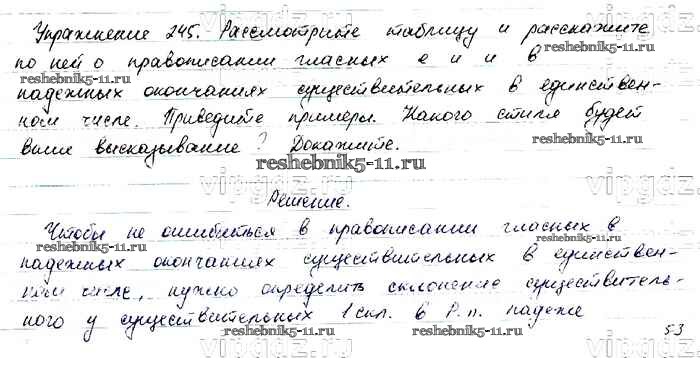 Упражнение 245. Рассмотрите таблицу и расскажите
по ней о правописании гласных е и и в
reshebnik5-11.ru
падежных окончаниях существительных в единствен-
ном числе. Приведите примеры. Какого стиля будет
ваше высказывание? Докажите.
reshebnik5-11.ru
vipgdz.ru
Решение.
Чтобы не ошибиться в правописании гласных в
reshebnik5-11.ru
падежных окончаниях существительных в единствен-
ном числе, нужно определить склонение существитель-
ного у существительных 1 скл. в Р.п. падеже
reshebnik5-11.ru
53